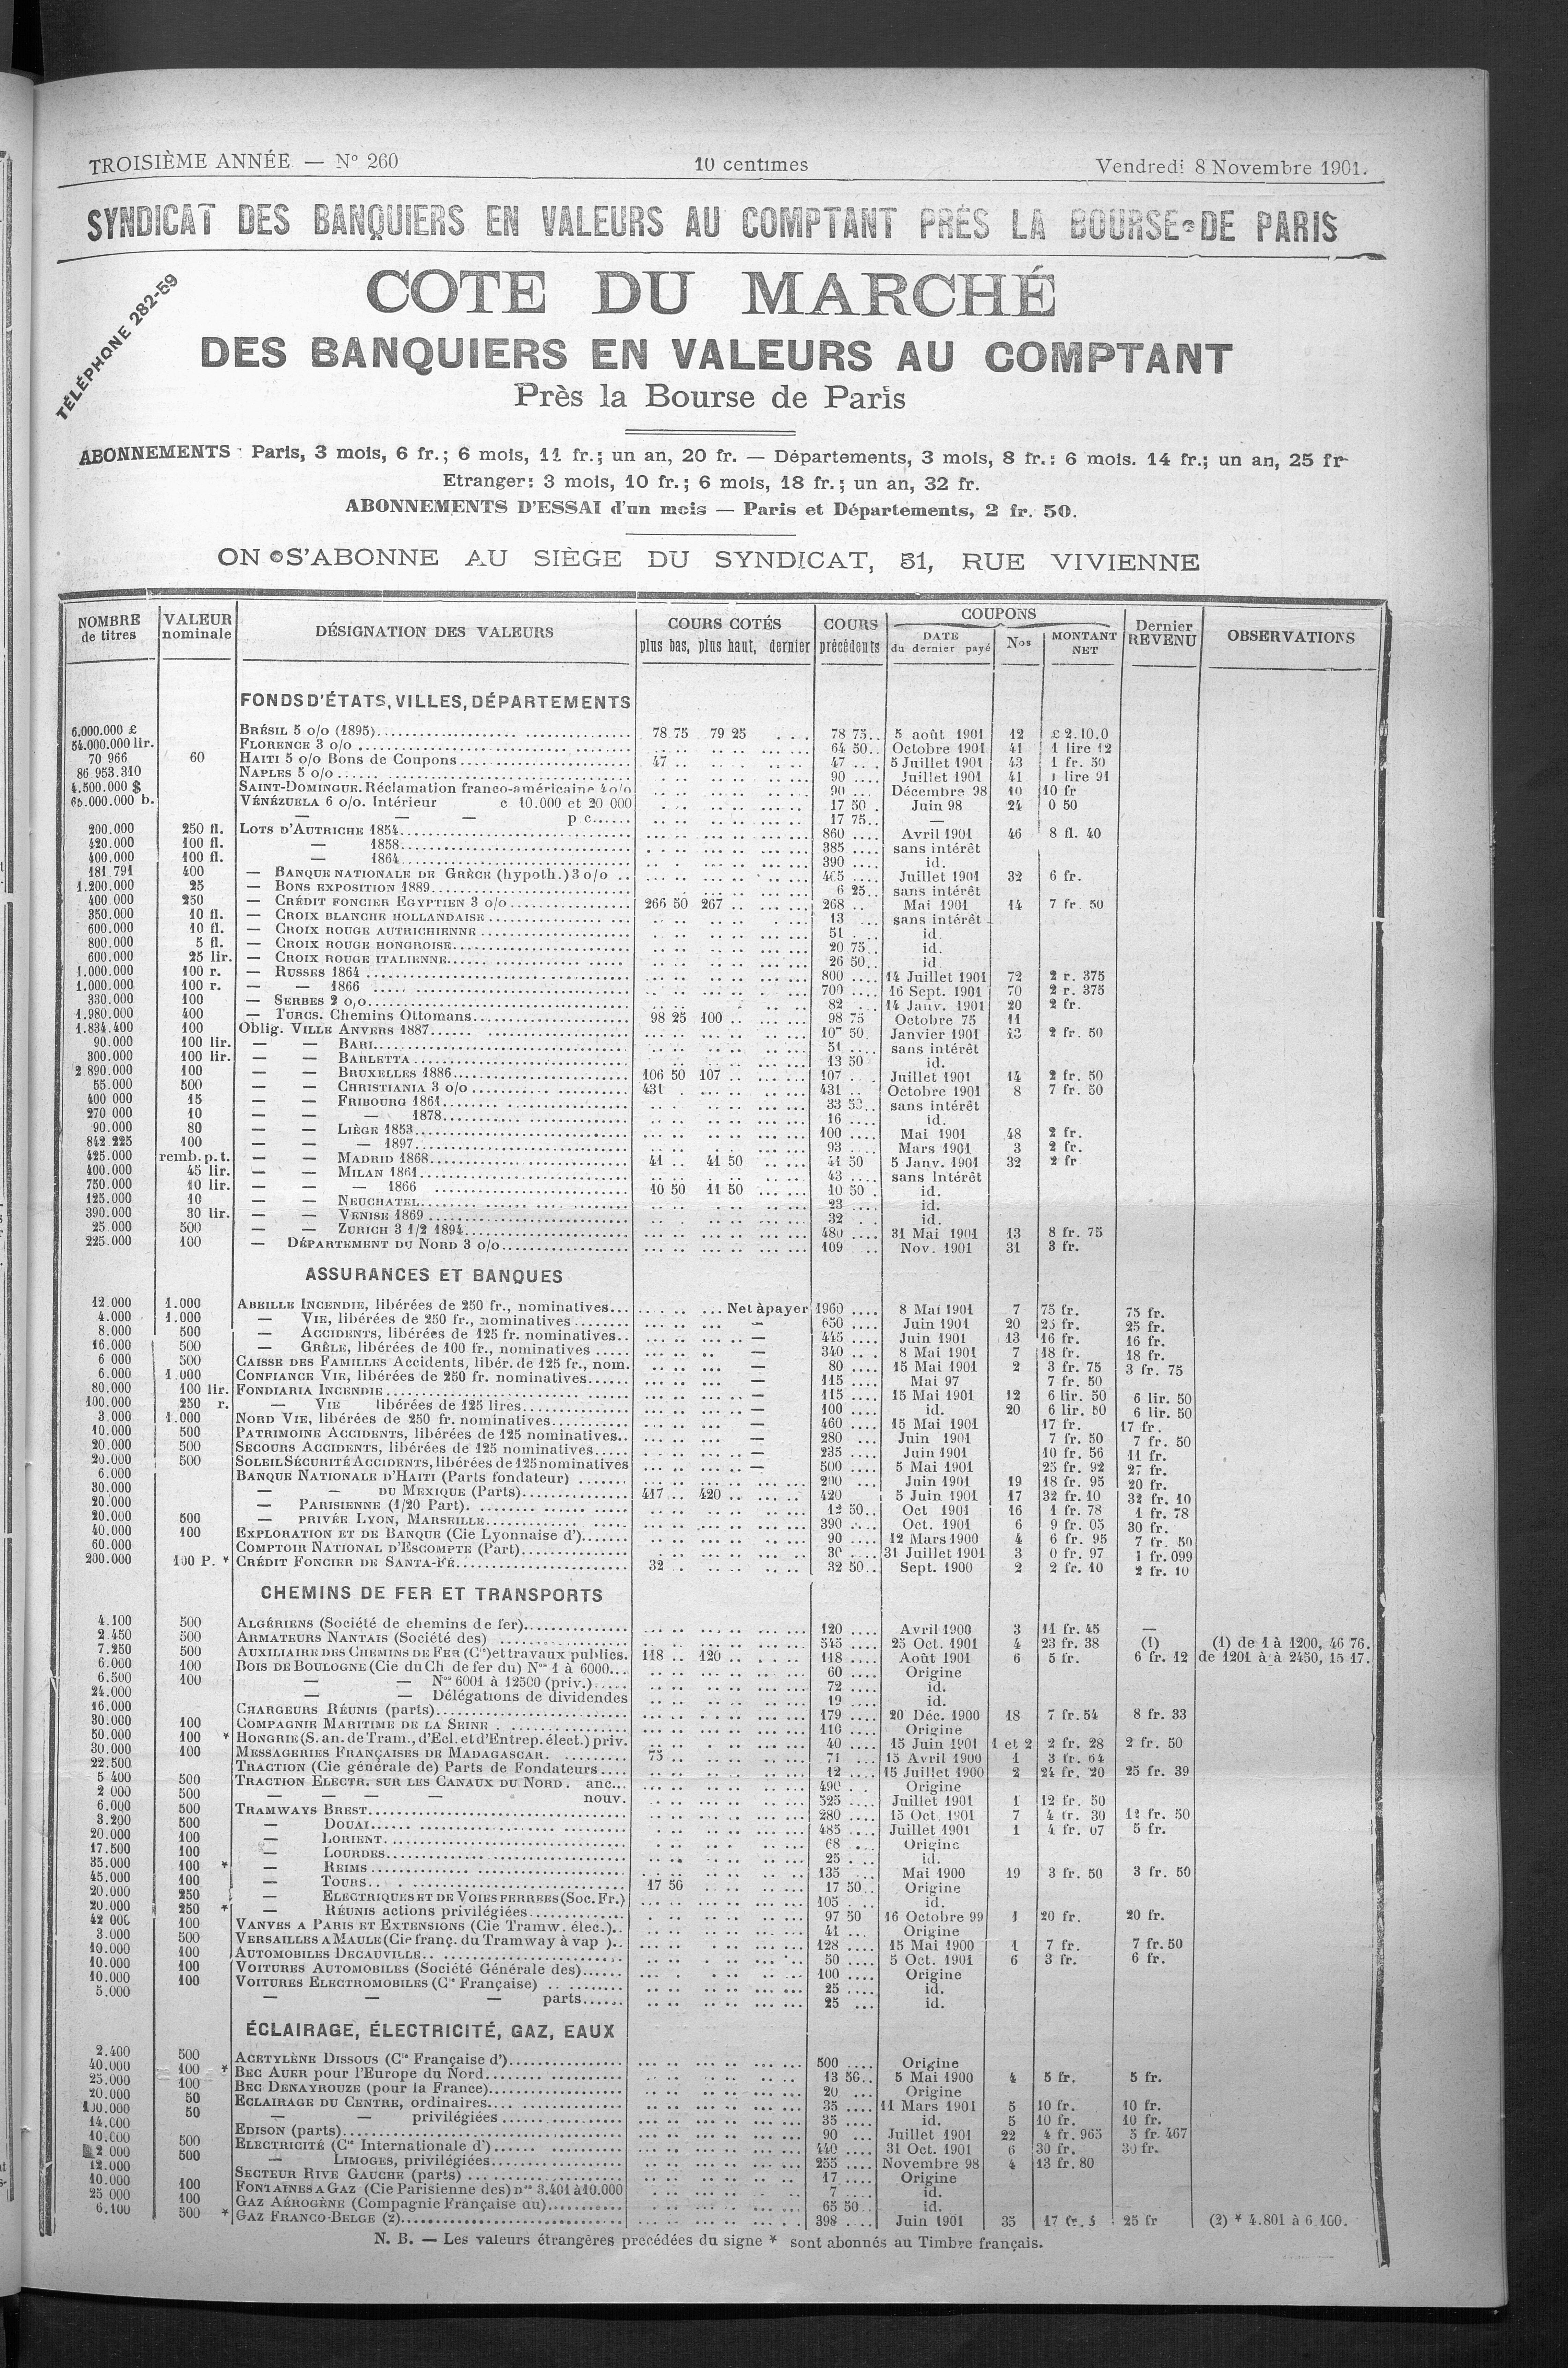 TROISIÈME ANNÉE — N° 260 10 centimes Vendredi 8 Novembre 1901.
SYNDICAT DES BANQUIERS EN VALEURS AU COMPTANT PRÈS LA BOURSE DE PARIS
TÉLÉPHONE 282-59
COTE DU MARCHÉ
DES BANQUIERS EN VALEURS AU COMPTANT
Près la Bourse de Paris
ABONNEMENTS : Paris, 3 mois, 6 fr.; 6 mois, 11 fr.; un an, 20 fr. — Départements, 3 mois, 8 fr.: 6 mois. 14 fr.; un an, 25 fr
Etranger: 3 mois, 10 fr.; 6 mois, 18 fr.; un an, 32 fr.
ABONNEMENTS D'ESSAI d'un mois — Paris et Départements, 2 fr. 50.
ON S'ABONNE AU SIÈGE DU SYNDICAT, 31, RUE VIVIENNE
NOMBRE de titres VALEUR nominale DÉSIGNATION DES VALEURS COURS COTÉS plus bas, plus haut, dernier COURS précédents COUPONS DATE du dernier payé Nos MONTANT NET Dernier REVENU OBSERVATIONS
FONDS D'ÉTATS, VILLES, DÉPARTEMENTS
6.000.000 £ BRÉSIL 5 o/o (1895) 78 75 79 25 78 75 5 août 1901 12 £ 2.10.0
54.000.000 lir. FLORENCE 3 o/o 64 50 Octobre 1901 41 1 lire 12
70 966 60 HAITI 5 o/o Bons de Coupons 47 47 5 Juillet 1901 43 1 fr. 50
86 953.310 NAPLES 5 o/o 90 Juillet 1901 41 1 lire 91
4.500.000 $ SAINT-DOMINGUE. Réclamation franco-américaine 4 o/o 90 Décembre 98 10 10 fr
60.000.000 b. VÉNÉZUELA 6 o/o. Intérieur c 10.000 et 20 000 17 50 Juin 98 24 0 50
— — — p c 17 75 —
200.000 250 fl. LOTS D'AUTRICHE 1854 860 Avril 1901 46 8 fl. 40
420.000 100 fl. — 1858 385 sans intérêt
400.000 100 fl. — 1864 390 id.
181.791 400 — BANQUE NATIONALE DE GRÈCE (hypoth.) 3 o/o 465 Juillet 1901 32 6 fr.
1.200.000 25 — BONS EXPOSITION 1889 6 25 sans intérêt
400 000 250 — CRÉDIT FONCIER EGYPTIEN 3 o/o 266 50 267 268 Mai 1901 14 7 fr. 50
350.000 10 fl. — CROIX BLANCHE HOLLANDAISE 13 sans intérêt
600.000 10 fl. — CROIX ROUGE AUTRICHIENNE 51 id.
800.000 5 fl. — CROIX ROUGE HONGROISE 20 75 id.
600.000 25 lir. — CROIX ROUGE ITALIENNE 26 50 id.
1.000.000 100 r. — RUSSES 1864 800 14 Juillet 1901 72 2 r. 375
1.000.000 100 r. — — 1866 700 16 Sept. 1901 70 2 r. 375
330.000 100 — SERBES 2 o/o 82 14 Janv. 1901 20 2 fr.
1.980.000 400 — TURCS. Chemins Ottomans 98 25 100 98 75 Octobre 75 11
1.834.400 100 Oblig. VILLE ANVERS 1887 107 50 Janvier 1901 43 2 fr. 50
90.000 100 lir. — — BARI 51 sans intérêt
300.000 100 lir. — — BARLETTA 13 50 id.
2 890.000 100 — — BRUXELLES 1886 106 50 107 107 Juillet 1901 14 2 fr. 50
55.000 500 — — CHRISTIANIA 3 o/o 431 431 Octobre 1901 8 7 fr. 50
400 000 15 — — FRIBOURG 1861 33 sans intérêt
270 000 10 — — — 1878 16 id.
90.000 80 — — LIÈGE 1853 100 Mai 1901 48 2 fr.
842 225 100 — — — 1897 93 Mars 1901 3 2 fr.
425.000 remb. p. t. — — MADRID 1868 41 41 50 41 50 5 Janv. 1901 32 2 fr
400.000 45 lir. — — MILAN 1861 43 sans Intérêt
750.000 10 lir. — — — 1866 10 50 11 50 10 50 id.
125.000 10 — — NEUCHATEL 23 id.
390.000 30 lir. — — VENISE 1869 32 id.
25.000 500 — — ZURICH 3 1/2 1894 480 31 Mai 1901 13 8 fr. 75
225.000 100 — DÉPARTEMENT DU NORD 3 o/o 109 Nov. 1901 31 3 fr.
ASSURANCES ET BANQUES
12.000 1.000 ABEILLE INCENDIE, libérées de 250 fr., nominatives Net à payer 1960 8 Mai 1901 7 75 fr. 75 fr.
4.000 1.000 — VIE, libérées de 250 fr., nominatives — 650 Juin 1901 20 25 fr. 25 fr.
8.000 500 — ACCIDENTS, libérées de 125 fr. nominatives — 445 Juin 1901 13 16 fr. 16 fr.
16.000 500 — GRÊLE, libérées de 100 fr., nominatives — 340 8 Mai 1901 7 18 fr. 18 fr.
6 000 500 CAISSE DES FAMILLES Accidents, libér. de 125 fr., nom. — 80 15 Mai 1901 2 3 fr. 75 3 fr. 75
6.000 1.000 CONFIANCE VIE, libérées de 250 fr. nominatives — 115 Mai 97 7 fr. 50
80.000 100 lir. FONDIARIA INCENDIE — 115 15 Mai 1901 12 6 lir. 50 6 lir. 50
100.000 250 r. — VIE libérées de 125 lires — 100 id. 20 6 lir. 50 6 lir. 50
3.000 1.000 NORD VIE, libérées de 250 fr. nominatives — 460 15 Mai 1901 17 fr. 17 fr.
10.000 500 PATRIMOINE ACCIDENTS, libérées de 125 nominatives — 280 Juin 1901 7 fr. 50 7 fr. 50
20.000 500 SECOURS ACCIDENTS, libérées de 125 nominatives — 235 Juin 1901 10 fr. 56 11 fr.
20.000 500 SOLEIL SÉCURITÉ ACCIDENTS, libérées de 125 nominatives — 500 5 Mai 1901 25 fr. 92 27 fr.
6.000 BANQUE NATIONALE D'HAITI (Parts fondateur) 200 Juin 1901 19 18 fr. 95 20 fr.
30.000 — — DU MEXIQUE (Parts) 417 420 420 5 Juin 1901 17 32 fr. 10 32 fr. 10
20.000 — PARISIENNE (1/20 Part) 12 50 Oct 1901 16 1 fr. 78 1 fr. 78
20.000 500 — PRIVÉE LYON, MARSEILLE 390 Oct. 1901 6 9 fr. 05 30 fr.
40.000 100 EXPLORATION ET DE BANQUE (Cie Lyonnaise d') 90 12 Mars 1900 4 6 fr. 95 7 fr. 50
60.000 COMPTOIR NATIONAL D'ESCOMPTE (Part) 30 31 Juillet 1901 3 0 fr. 97 1 fr. 099
200.000 100 P. * CRÉDIT FONCIER DE SANTA-FÉ 32 32 50 Sept. 1900 2 2 fr. 10 2 fr. 10
CHEMINS DE FER ET TRANSPORTS
4.100 500 ALGÉRIENS (Société de chemins de fer) 120 Avril 1900 3 11 fr. 45 —
2.450 500 ARMATEURS NANTAIS (Société des) 545 25 Oct. 1901 4 23 fr. 38 (1) (1) de 1 à 1200, 46 76.
7.250 500 AUXILIAIRE DES CHEMINS DE FER (Cie) et travaux publics. 118 120 118 Août 1901 6 5 fr. 6 fr. 12 de 1201 à à 2450, 15 17.
6.000 100 BOIS DE BOULOGNE (Cie du Ch de fer du) Nos 1 à 6000 60 Origine
6.500 100 — — Nos 6001 à 12500 (priv.) 72 id.
24.000 — — Délégations de dividendes 19 id.
16.000 CHARGEURS RÉUNIS (parts) 179 20 Déc. 1900 18 7 fr. 54 8 fr. 33
30.000 100 COMPAGNIE MARITIME DE LA SEINE 110 Origine
50.000 100 * HONGRIE (S. an. de Tram., d'Ecl. et d'Entrep. élect.) priv. 40 15 Juin 1901 1 et 2 2 fr. 28 2 fr. 50
30.000 100 MESSAGERIES FRANÇAISES DE MADAGASCAR 75 71 15 Avril 1900 1 3 fr. 64
22.500 TRACTION (Cie générale de) Parts de Fondateurs 12 15 Juillet 1900 2 24 fr. 20 25 fr. 39
5 400 500 TRACTION ELECTR. SUR LES CANAUX DU NORD. anc. 490 Origine
2 000 500 — — — — nouv. 525 Juillet 1901 1 12 fr. 50
6.000 500 TRAMWAYS BREST 280 15 Oct. 1901 7 4 fr. 30 12 fr. 50
3.200 500 — DOUAI 485 Juillet 1901 1 4 fr. 07 5 fr.
20.000 100 — LORIENT 68 Origine
17.500 100 — LOURDES 25 id.
35.000 100 * — REIMS 135 Mai 1900 19 3 fr. 50 3 fr. 50
45.000 100 — TOURS 17 50 17 50 Origine
20.000 250 — ELECTRIQUES ET DE VOIES FERREES (Soc. Fr.) 105 id.
20.000 250 * — RÉUNIS actions privilégiées 97 50 16 Octobre 99 1 20 fr. 20 fr.
42 000 100 VANVES A PARIS ET EXTENSIONS (Cie Tramw. élec.) 41 Origine
3.000 500 VERSAILLES A MAULE (Cie franç. du Tramway à vap ) 128 15 Mai 1900 1 7 fr. 7 fr. 50
10.000 100 AUTOMOBILES DECAUVILLE 50 5 Oct. 1901 6 3 fr. 6 fr.
10.000 100 VOITURES AUTOMOBILES (Société Générale des) 100 Origine
10.000 100 VOITURES ELECTROMOBILES (Cie Française) 25 id.
5.000 — — — parts 25 id.
ÉCLAIRAGE, ÉLECTRICITÉ, GAZ, EAUX
2.400 500 ACETYLÈNE DISSOUS (Cie Française d') 500 Origine
40.000 100 * BEC AUER pour l'Europe du Nord 13 50 5 Mai 1900 4 5 fr. 5 fr.
25.000 100 BEC DENAYROUZE (pour la France) 20 Origine
20.000 50 ECLAIRAGE DU CENTRE, ordinaires 35 11 Mars 1901 5 10 fr. 10 fr.
100.000 50 — — privilégiées 35 id. 5 10 fr. 10 fr.
14.000 EDISON (parts) 90 Juillet 1901 22 4 fr. 965 5 fr. 467
10.000 500 ELECTRICITÉ (Cie Internationale d') 440 31 Oct. 1901 6 30 fr. 30 fr.
2 000 500 — LIMOGES, privilégiées 255 Novembre 98 4 13 fr. 80
12.000 SECTEUR RIVE GAUCHE (parts) 17 Origine
10.000 100 FONTAINES A GAZ (Cie Parisienne des) nos 3.401 à 10.000 7 id.
25 000 100 GAZ AÉROGÈNE (Compagnie Française du) 65 50 id.
6.100 500 * GAZ FRANCO-BELGE (2) 398 Juin 1901 35 17 fr. 25 fr (2) * 4.801 à 6.100.
N. B. — Les valeurs étrangères precédées du signe * sont abonnés au Timbre français.